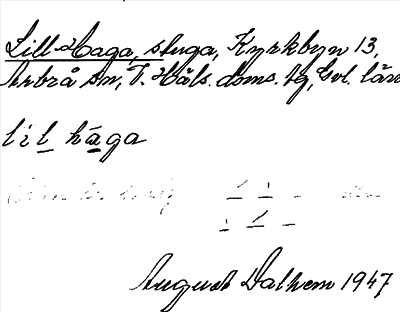 Lill-Haga, stuga, Kyrkbyn 13,
Arbrå sn, V. Häls. doms. tg, Gvl. län
lil haga
August Dalhem 1947